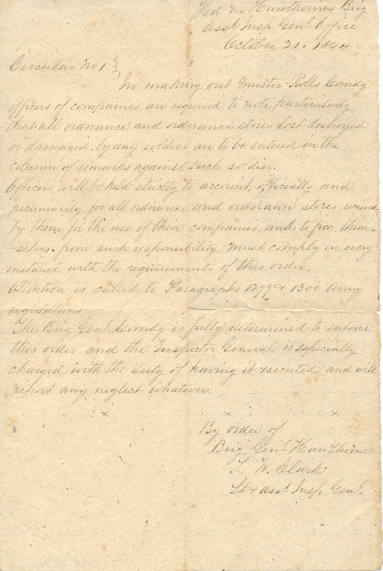 Hd Qrs Hawthornes Brig
Asst Insp Genl Office
October 21. 1864
Circular No 1
In making out Muster Rolls Comdg
officers of companies are required to note particularly
that all ordnance and ordnance stores lost destroyed
or damaged, by any soldier are to be entered in the
column of remarks against such soldier.
Officers will be held strictly to account, officially and
pecuniarily, for all ordnance, and ordnance stores received
by them for the use of their companies, and to free them-
selves from such responsibility must comply in every
instance with the requirements of this order.
Attention is called to Paragraphs 1299 & 1300 Army
regulations
The Brig Genl Comdg is fully determined to enforce
this order and the Inspector General is especially
charged with the duty of having it executed and will
report any neglect whatever.
By order of
Brig Genl Hawthorne
W. Clark
Lt & asst Insp Genl.